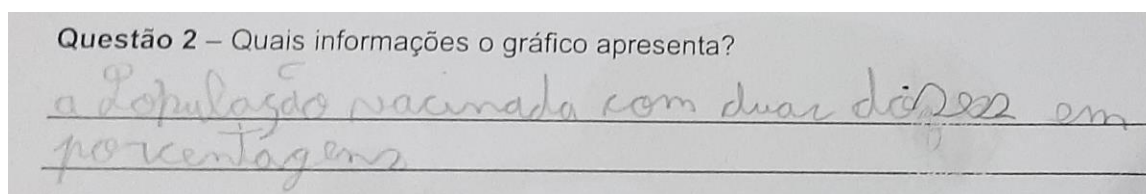 Questão 2 – Quais informações o gráfico apresenta?
a População vacinada com duas dóses em
porcentagens